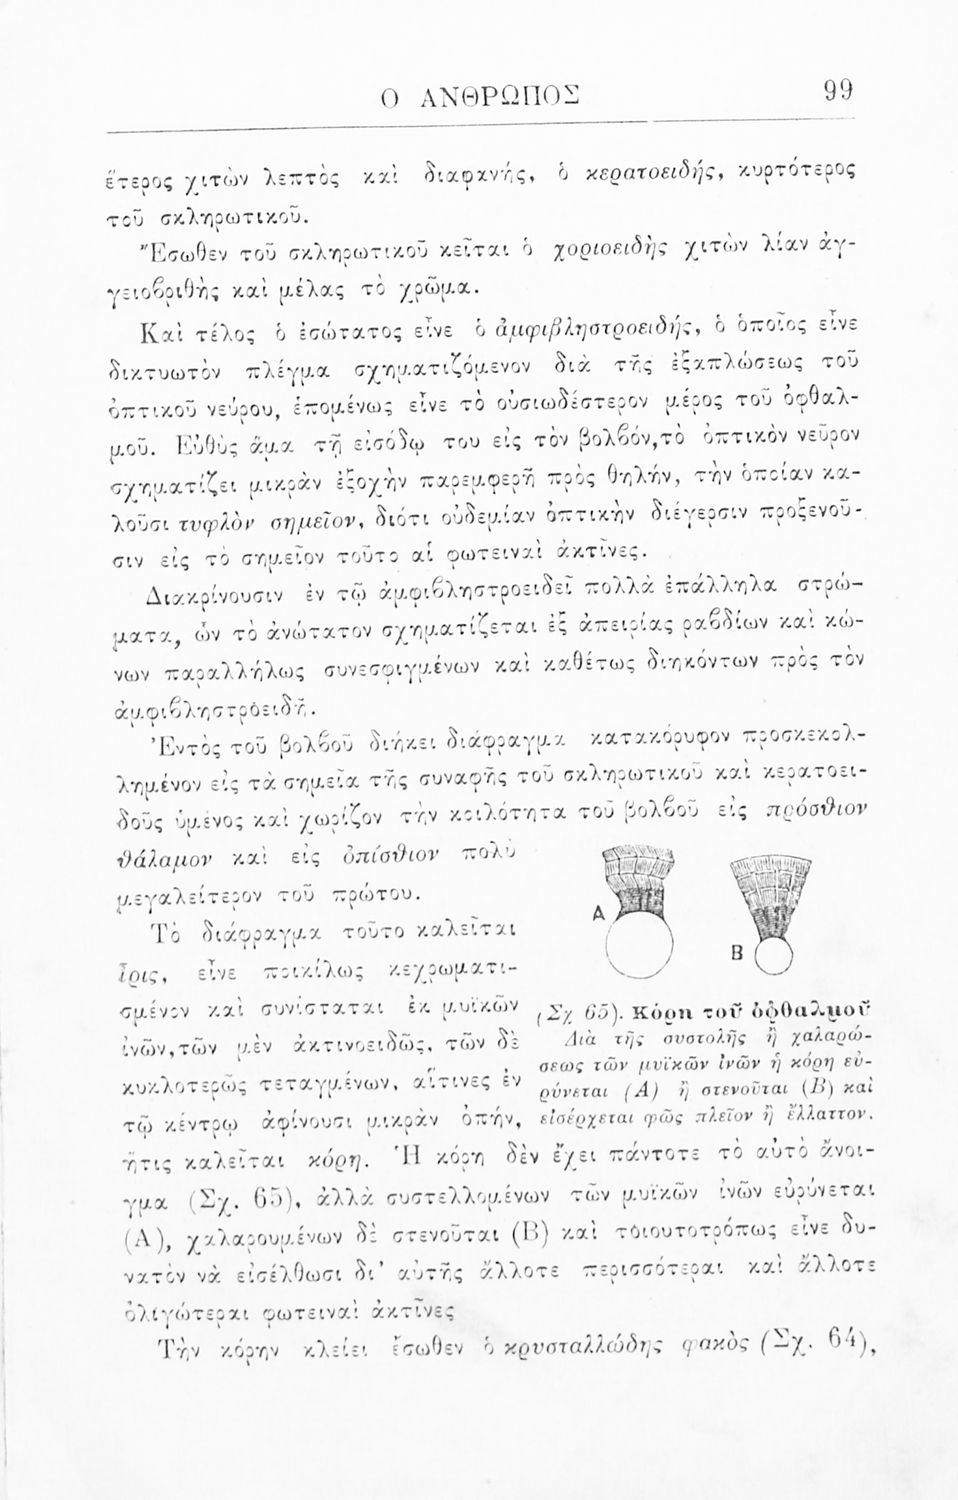 Ο ΑΝΘΡΩΠΟΣ 99
ἕτερος χιτὼν λεπτὸς καὶ διαφανής, ὁ κερατοειδής, κυρτότερος
τοῦ σκληρωτικοῦ.
Ἔσωθεν τοῦ σκληρωτικοῦ κεῖται ὁ χοριοειδὴς χιτὼν λίαν ἀγ-
γειοβριθὴς καὶ μέλας τὸ χρῶμα.
Καὶ τέλος ὁ ἐσώτατος εἶνε ὁ ἀμφιβληστροειδής, ὁ ὁποῖος εἶνε
δικτυωτὸν πλέγμα σχηματιζόμενον διὰ τῆς ἐξαπλώσεως τοῦ
ὀπτικοῦ νεύρου, ἑπομένως εἶνε τὸ οὐσιωδέστερον μέρος τοῦ ὀφθαλ-
μοῦ. Εὐθὺς ἅμα τῇ εἰσόδῳ του εἰς τὸν βολβόν, τὸ ὀπτικὸν νεῦρον
σχηματίζει μικρὰν ἐξοχὴν παρεμφερῆ πρὸς θηλήν, τὴν ὁποίαν κα-
λοῦσι τυφλὸν σημεῖον, διότι οὐδεμίαν ὀπτικὴν διέγερσιν προξενοῦ-
σιν εἰς τὸ σημεῖον τοῦτο αἱ φωτειναὶ ἀκτῖνες.
Διακρίνουσιν ἐν τῷ ἀμφιβληστροειδεῖ πολλὰ ἐπάλληλα στρώ-
ματα, ὧν τὸ ἀνώτατον σχηματίζεται ἐξ ἀπειρίας ραβδίων καὶ κώ-
νων παραλλήλως συνεσφιγμένων καὶ καθέτως διηκόντων πρὸς τὸν
ἀμφιβληστροειδῆ.
Ἐντὸς τοῦ βολβοῦ διήκει διάφραγμα κατακόρυφον προσκεκολ-
λημένον εἰς τὰ σημεῖα τῆς συναφῆς τοῦ σκληρωτικοῦ καὶ κερατοει-
δοῦς ὑμένος καὶ χωρίζον τὴν κοιλότητα τοῦ βολβοῦ εἰς πρόσθιον
θάλαμον καὶ εἰς ὀπίσθιον πολὺ
μεγαλείτερον τοῦ πρώτου.
Τὸ διάφραγμα τοῦτο καλεῖται
ἶρις, εἶνε ποικίλως κεχρωματι-
σμένον καὶ συνίσταται ἐκ μυϊκῶν
ἰνῶν, τῶν μὲν ἀκτινοειδῶς, τῶν δὲ
κυκλοτερῶς τεταγμένων, αἵτινες ἐν
τῷ κέντρῳ ἀφίνουσι μικρὰν ὀπήν,
A
B
(Σχ 65). Κόρη τοῦ ὀφθαλμοῦ
Διὰ τῆς συστολῆς ἢ χαλαρώ-
σεως τῶν μυϊκῶν ἰνῶν ἡ κόρη εὐ-
ρύνεται (Α) ἢ στενοῦται (Β) καὶ
εἰσέρχεται φῶς πλεῖον ἢ ἔλλαττον.
ἥτις καλεῖται κόρη. Ἡ κόρη δὲν ἔχει πάντοτε τὸ αὐτὸ ἄνοι-
γμα (Σχ. 65), ἀλλὰ συστελλομένων τῶν μυϊκῶν ἰνῶν εὐρύνεται
(Α), χαλαρουμένων δὲ στενοῦται (Β) καὶ τοιουτοτρόπως εἶνε δυ-
νατὸν νὰ εἰσέλθωσι δι' αὐτῆς ἄλλοτε περισσότεραι καὶ ἄλλοτε
ὀλιγώτεραι φωτειναὶ ἀκτῖνες
Τὴν κόρην κλείει ἔσωθεν ὁ κρυσταλλώδης φακὸς (Σχ. 64),